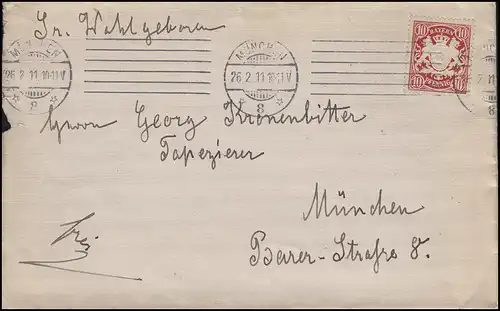 Sr. Wohlgeboren
MÜNCHEN
26 2 11 10-11 V
* 8 *
MÜNCHEN
26 2 11 10-11 V
* 8 *
10 BAYERN 10
10 PFENNIG 10
Herrn Georg Kronenbitter
Tapezierer
München
Barer-Strasse 8.
frei